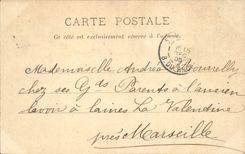 CARTE POSTALE
Ce côté est exclusivement réservé à l'adresse.
Mademoiselle Andréa
chez ses Gds Parents à l'ancien
lavoir à laines La Valentine
près Marseille